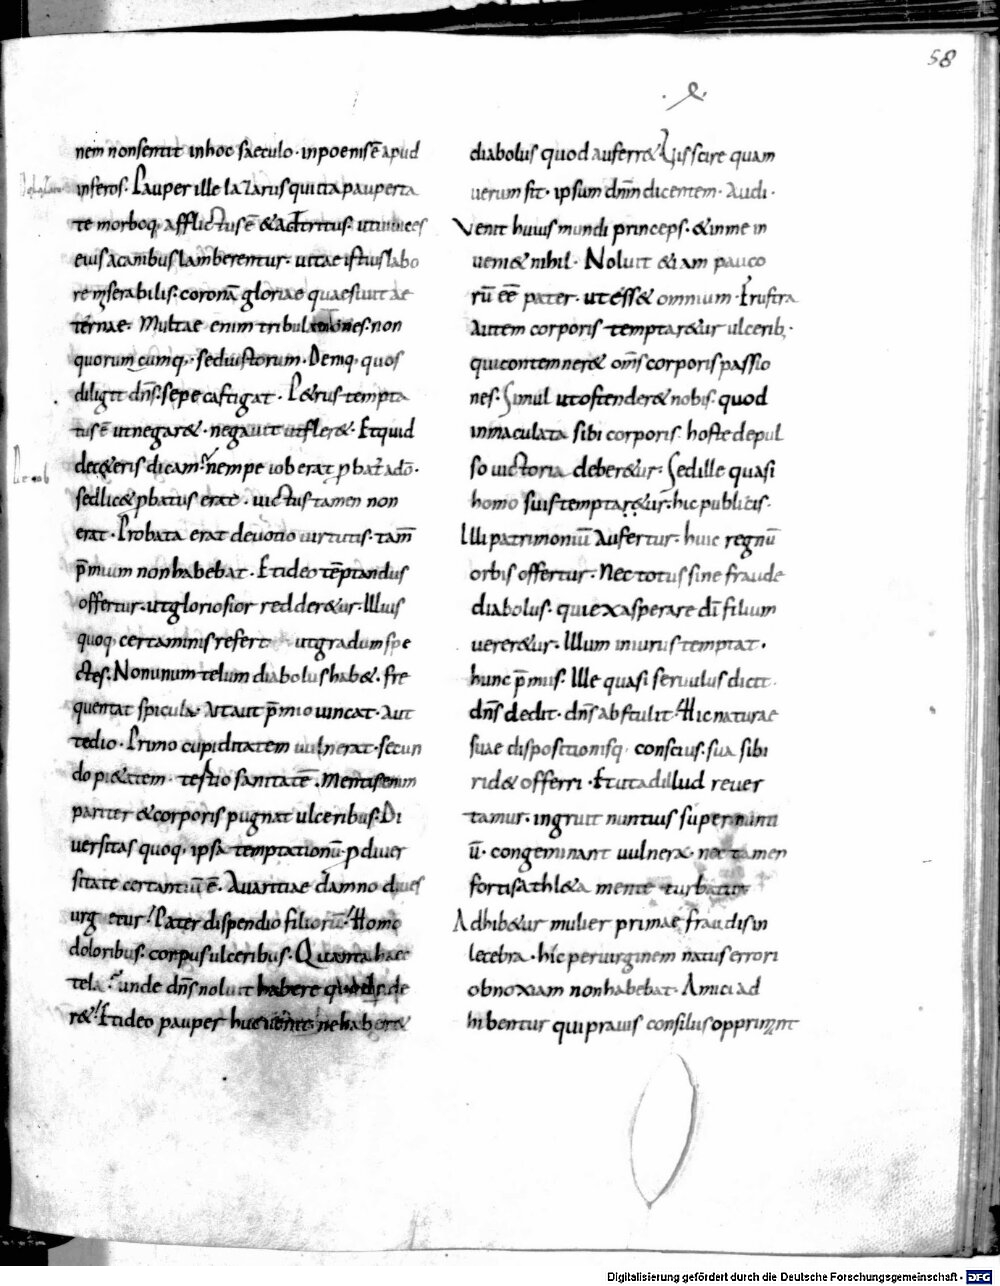 58
nem non sentit in hoc saeculo · in poenis ē apud
inferos · Pauper ille lazarus qui tia pauperta
te morboq; afflictus ē & adtritus · ut
eius a canibus lamberentur · uitae istius labo
re miserabilis · coronā gloriae quaesiuit ae
ternae · Multae enim tribulationes · non
quorumcumq; · sed iustorum · Demq; quos
diligit dn̄s · sepe castigat · P&rus tempta
tus ē ut negar& · negauit ut fler& · Et quid
de c&eris dicam · nempe iob erat ꝓbat ad ō ·
sed lic& ꝓbatus erat · uictus tamen non
erat · Probata erat deuotio uirtutis · tam̄
p̄mium non habebat · Et ideo tēptandus
offertur · ut gloriosior redder&ur · Illius
quoq; certaminis refert ut gradum spe
ctes · Non unum telum diabolus hab& · fre
quentat spicula · ut aut p̄mio uincat · aut
tedio · Primo cupiditatem uulnerat · secun
do pi&atem · testio sanitatē · Mentis enim
pariter & corporis pugnat ulceribus · Di
uersitas quoq; ipsa temptationū ꝓ diuer
sitate certantiū ē · Auaritiae damno diues
urg etur · Pater dispendio filiorū · Homo
doloribus · corpus ulceribus · Quanta haec
tela · unde dn̄s noluit habere de
r& · Et ideo pauper huc uenit · ne haber&
diabolus quod auferr& · Uis scire quam
uerum sit · ipsum dn̄m dicentem · Audi ·
Venit huius mundi princeps · & in me in
ueni& nihil · Noluit &iam pauco
rū eē pater · ut ess& omnium · Frustra
autem corporis temptar&ur ulcerib;
qui contemner& om̄s corporis passio
nes · Simul ut ostender& nobis · quod
inmaculata sibi corporis hoste depul
so uictoria deber&ur · Sed ille quasi
homo suis temptar&ur · hic publicis ·
Illi patrimoniū aufertur · huic regnū
orbis offertur · Nec totus sine fraude
diabolus · qui exasperare dī filium
uerer&ur · Illum iniurus temptat ·
hunc p̄mus · Ille quasi seruulus dicit ·
dn̄s dedit · dn̄s abstulit · Hic naturae
suae dispositionisq; conscius · sua sibi
rid& offerri · Et ut ad illud reuer
tamur · ingruit nuntius super nunti
ū · congeminant uulnera · nec tamen
fortis athl&a mente turbatur
Adhib&ur mulier primae fraudis in
lecebra · hic per uirginem natus errori
obnoxiam non habebat · Amici ad
hibentur qui prauis consiliis opprimunt
Digitalisierung gefördert durch die Deutsche Forschungsgemeinschaft - DFG